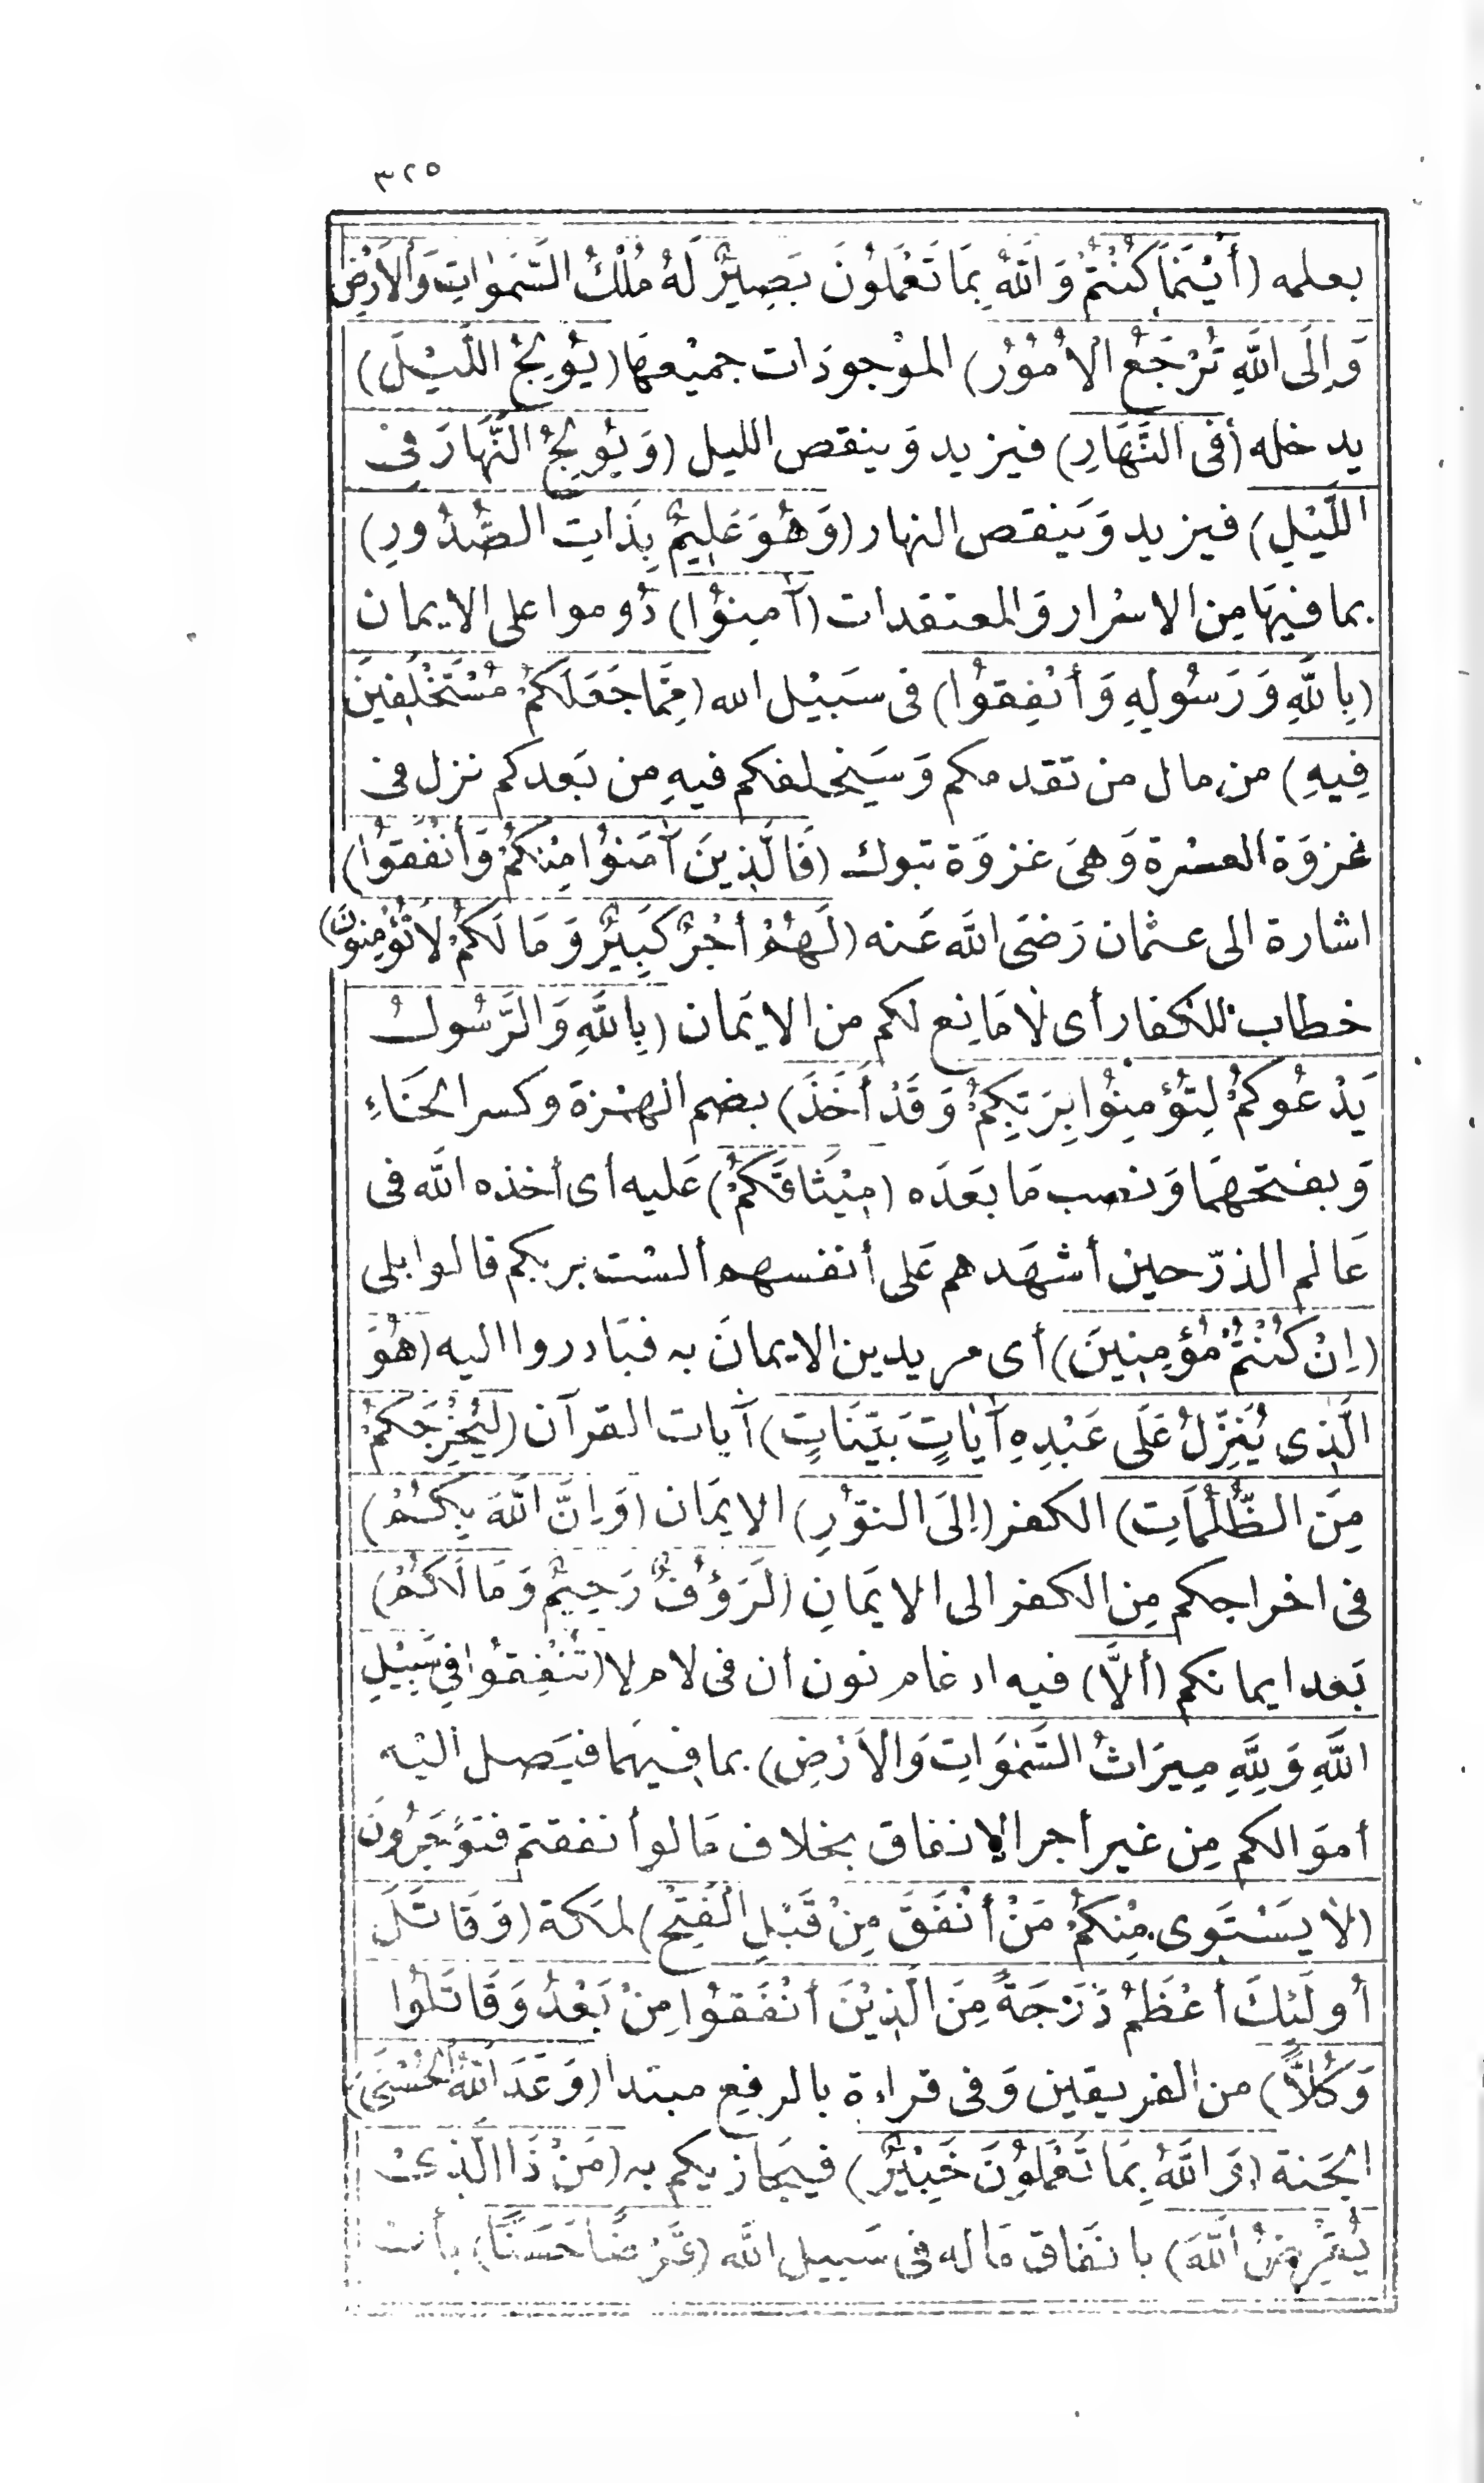 ٣٢٥
بعلمه (أَيْنَمَا كُنْتُمْ وَاللَّهُ بِمَا تَعْمَلُونَ بَصِيرٌ لَهُ مُلْكُ السَّمَوَاتِ وَالأَرْضِ
وَإِلَى اللَّهِ تُرْجَعُ الأُمُوْرُ) الموْجودَات جميْعهَا (يُوْلِجُ اللَّيْلَ)
يدخله (فى النَّهَارِ) فيزيد وَينقص الليل (وَيُوْلِجُ النَّهَارَ فِىْ
اللَّيْلِ) فيزيد وَيَنقص النهار (وَهُوَ عَلِيمٌ بِذَاتِ الصُّدُورِ)
بما فيهَا مِن الاسْرار وَالمعتقدات (آمِنُوْا) دُوموا على الايمان
(بِاللَّهِ وَرَسُولِهِ وَأَنْفِقُوْا) فى سَبيْل الله (مِمَّا جَعَلَكُمْ مُسْتَخْلَفِينَ
فِيهِ) من مال من تقدمكم وَسَيَخلفكم فيهِ من بَعدكم نزل فى
غزوَة العسْرة وَهىَ غزوَة تبوك (فَالَّذِينَ آمَنُوْا مِنْكُمْ وَأَنْفَقُوْا)
اشارة الى عثمان رَضىَ اللَّه عَنه (لَهُمْ أَجْرٌ كَبِيرٌ وَمَا لَكُمْ لاَ تُؤْمِنُونَ)
خطاب للكفار أى لاَ مَانِع لكم من الايَمان (بِاللَّهِ وَالرَّسُولُ
يَدْعُوكُمْ لِتُؤْمِنُوْا بِرَبِّكُمْ وَقَدْ أَخَذَ) بضم الهمْزة وكسر الخَاءِ
وَبفتحهمَا وَنصب مَا بعَدَه (مِيْثَاقَكُمْ) عَليه أى أخذه اللَّه فى
عَالم الذرّ حين أشهَدهم عَلى أنفسهم ألسْت بربكم قالوا بلى
(اِنْ كُنْتُمْ مُؤْمِنِينَ) أى مريدين الايمانَ به فبَادروا اليه (هُوَ
الَّذِى يُنَزِّلُ عَلَى عَبْدِهِ آيَاتٍ بَيِّنَاتٍ) آيات القرآن (لِيُخْرِجَكُمْ
مِنَ الظُّلُمَاتِ) الكفر (اِلَى النُّوْرِ) الايمَان (وَاِنَّ اللَّهَ بِكُمْ)
فى اخراجكم مِن الكفر الى الايَمانِ (لَرَؤُفٌ رَحِيمٌ وَمَا لَكُمْ)
بَعد ايمانكم (أَلاَّ) فيه ادغام نون أن فى لام لا (تُنْفِقُوْا فِي سَبِيْلِ
اللَّهِ وَلِلَّهِ مِيرَاثُ السَّمَوَاتِ وَالأَرْضِ) بما فِيهمَا فيَصل اليْه
أموَالكم مِن غير أجر الانفاق بخلاف مَا لو أنفقتم فتؤجَرُونَ
(لاَ يَسْتَوِى مِنْكُمْ مَنْ أَنْفَقَ مِنْ قَبْلِ الْفَتْحِ) لمكة (وَقَاتَلَ
أُولَئِكَ أَعْظَمُ دَرَجَةً مِنَ الَّذِيْنَ أَنْفَقُوْا مِنْ بَعْدُ وَقَاتَلُوا
وَكُلاًّ) من الفريقين وَفى قراءة بالرفع مبتدا (وَعَدَ اللَّهُ الْحُسْنَى)
الجَنة (وَاللَّهُ بِمَا تَعْمَلُوْنَ خَبِيْرٌ) فيجَازيكم به (مَنْ ذَا الَّذِىْ
يُقْرِضُ اللَّهَ) بانفَاق مَاله فى سَبيل اللَّه (قَرْضًا حَسَنًا) بأن